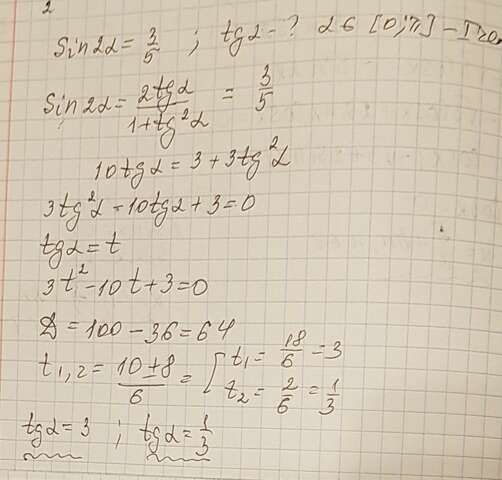 2
Sin2α = 3/5 ; tgα - ? α ∈ [0; π] -
Sin2α = 2tgα/1+tg²α = 3/5
10tgα = 3 + 3tg²α
3tg²α - 10tgα + 3 = 0
tgα = t
3t² - 10t + 3 = 0
D = 100 - 36 = 64
t1,2 = 10±8/6 = [ t1 = 18/6 = 3
t2 = 2/6 = 1/3
tgα = 3 ; tgα = 1/3